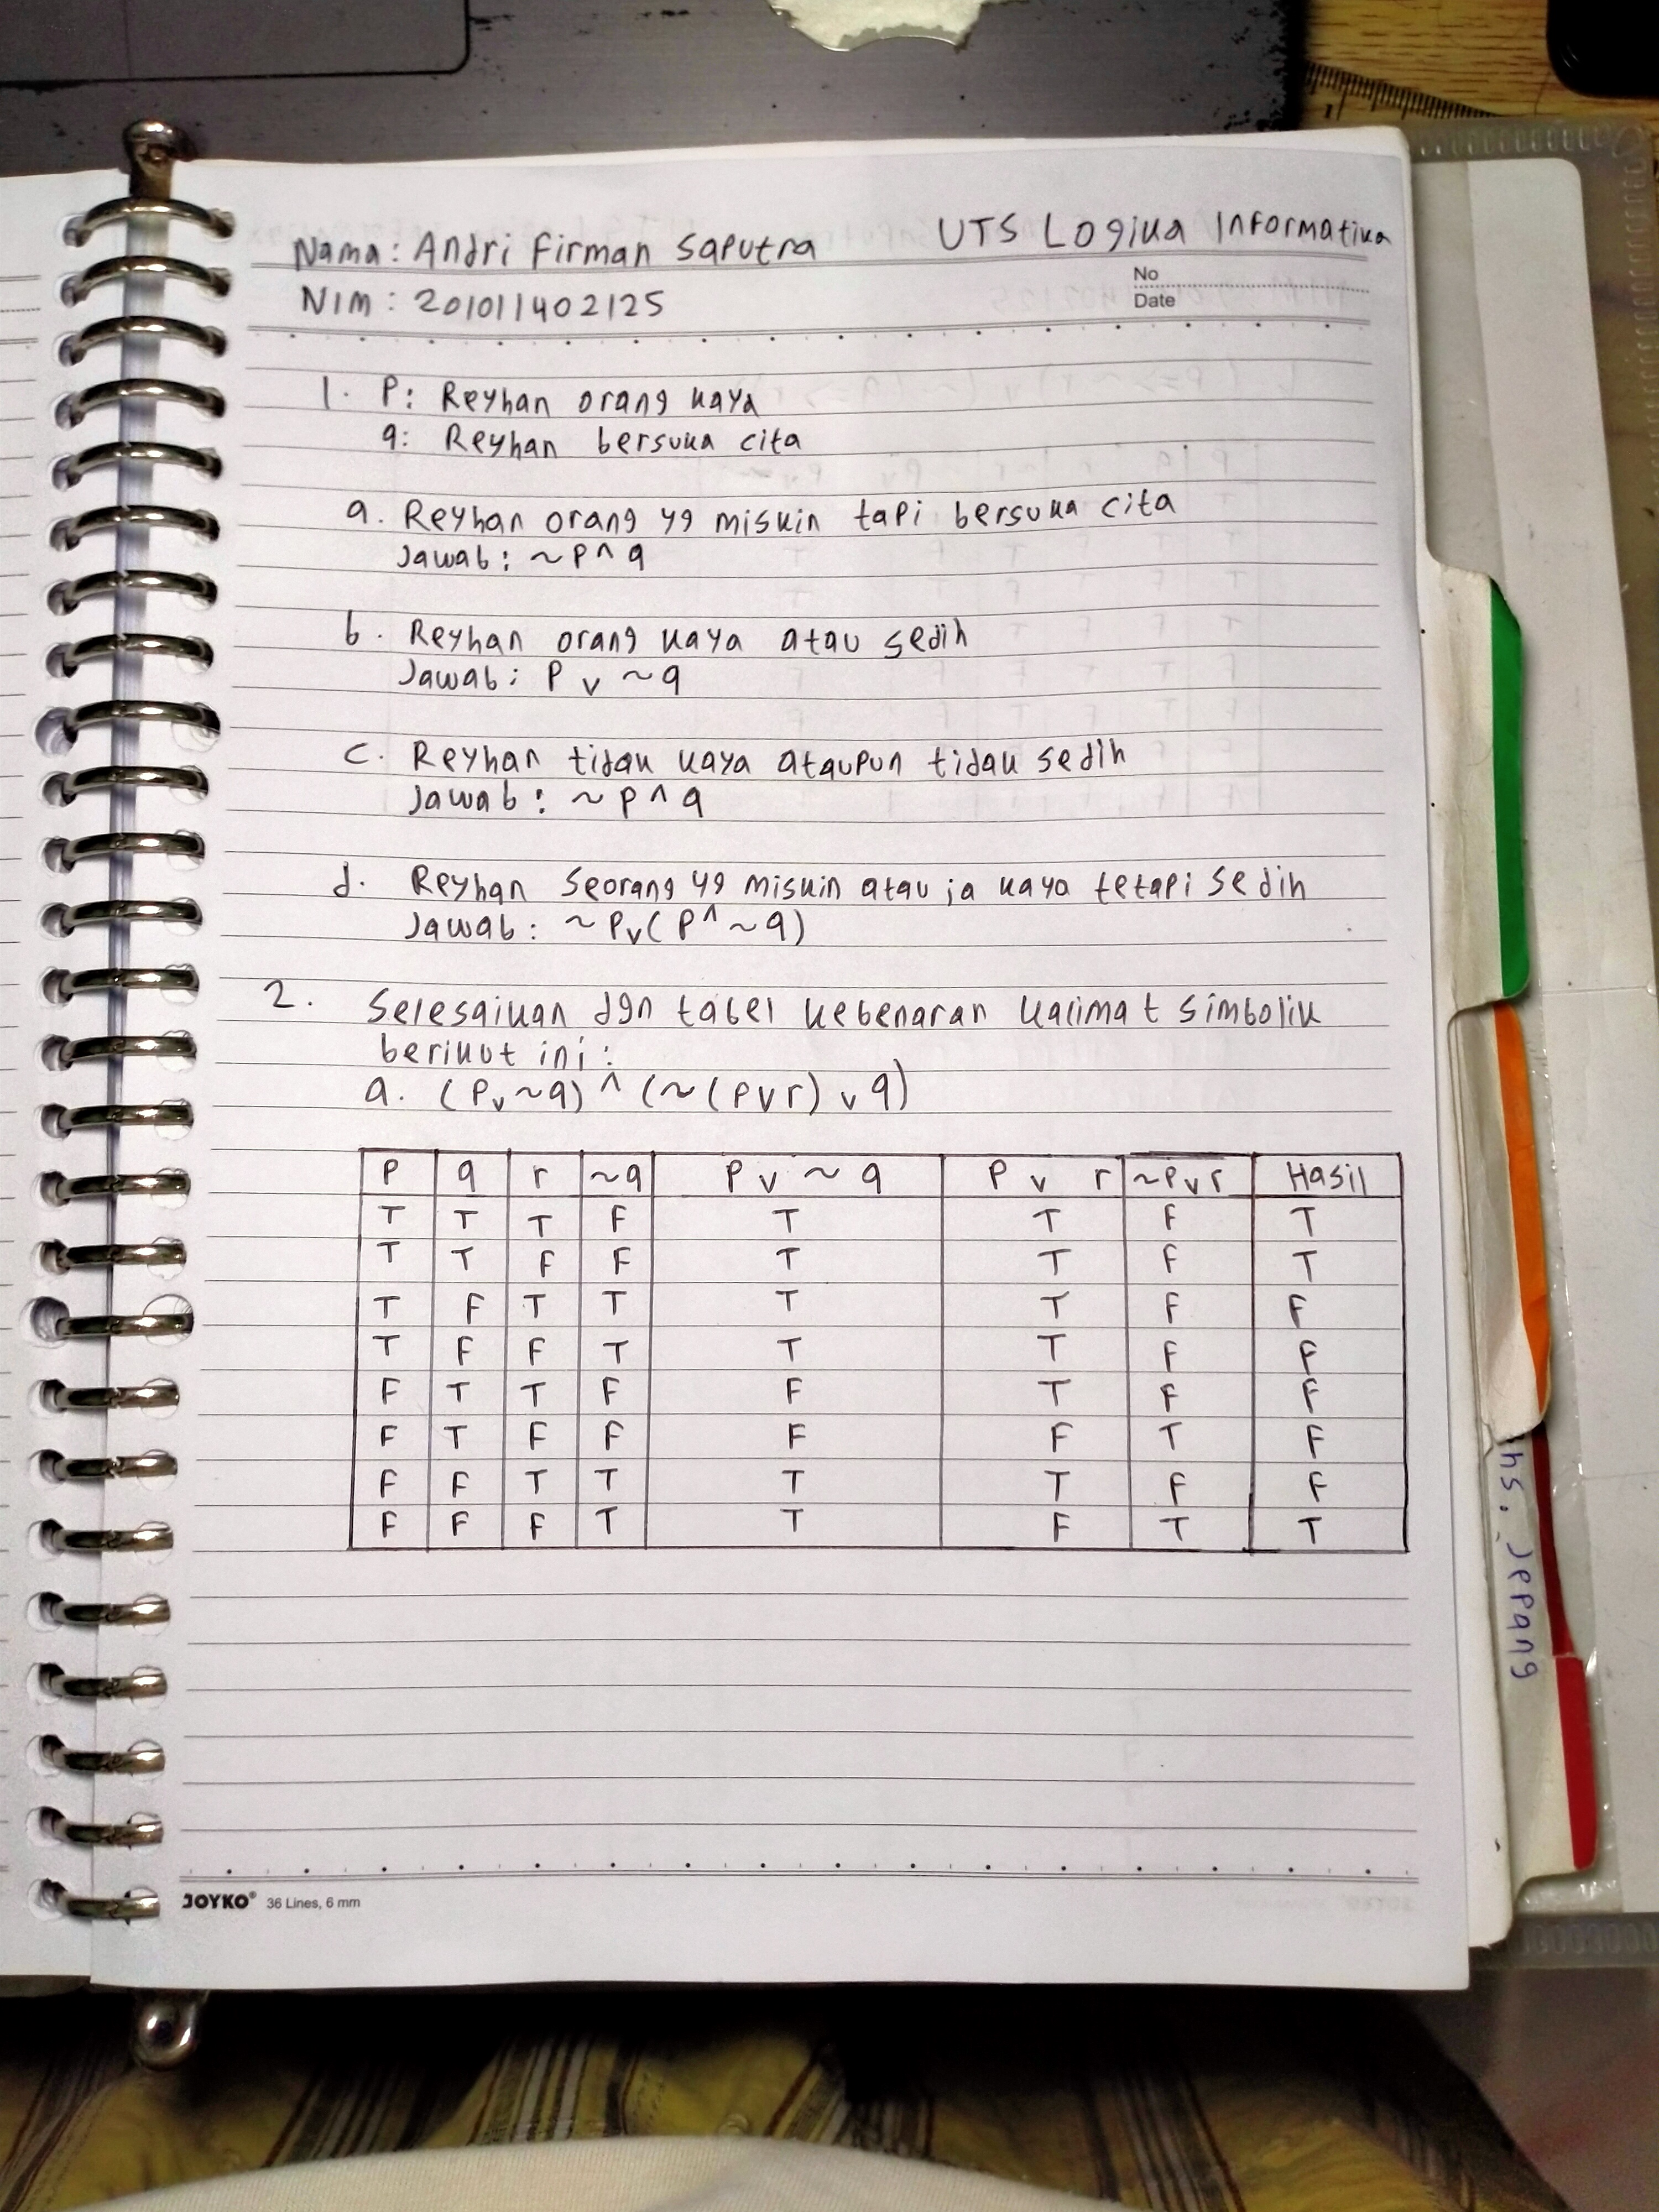 Nama : Andri Firman Saputra
UTS Logika Informatika
NIM : 201011402125
No
Date
1. P: Reyhan orang kaya
q: Reyhan bersuka cita
a. Reyhan orang yg miskin tapi bersuka cita
Jawab : ~P ^ q
b. Reyhan orang kaya atau sedih
Jawab : P v ~q
c. Reyhan tidak kaya ataupun tidak sedih
Jawab : ~P ^ q
d. Reyhan seorang yg miskin atau ia kaya tetapi sedih
Jawab : ~P v (P ^ ~q)
2. Selesaikan dgn tabel kebenaran kalimat simbolik
berikut ini :
a. (P v ~q) ^ (~(P v r) v q)
P q r ~q P v ~q P v r ~P v r Hasil
T T T F T T F T
T T F F T T F T
T F T T T T F F
T F F T T T F F
F T T F F T F F
F T F F F F T F
F F T T T T F F
F F F T T F T T
JOYKO® 36 Lines, 6 mm
hs. Jepang